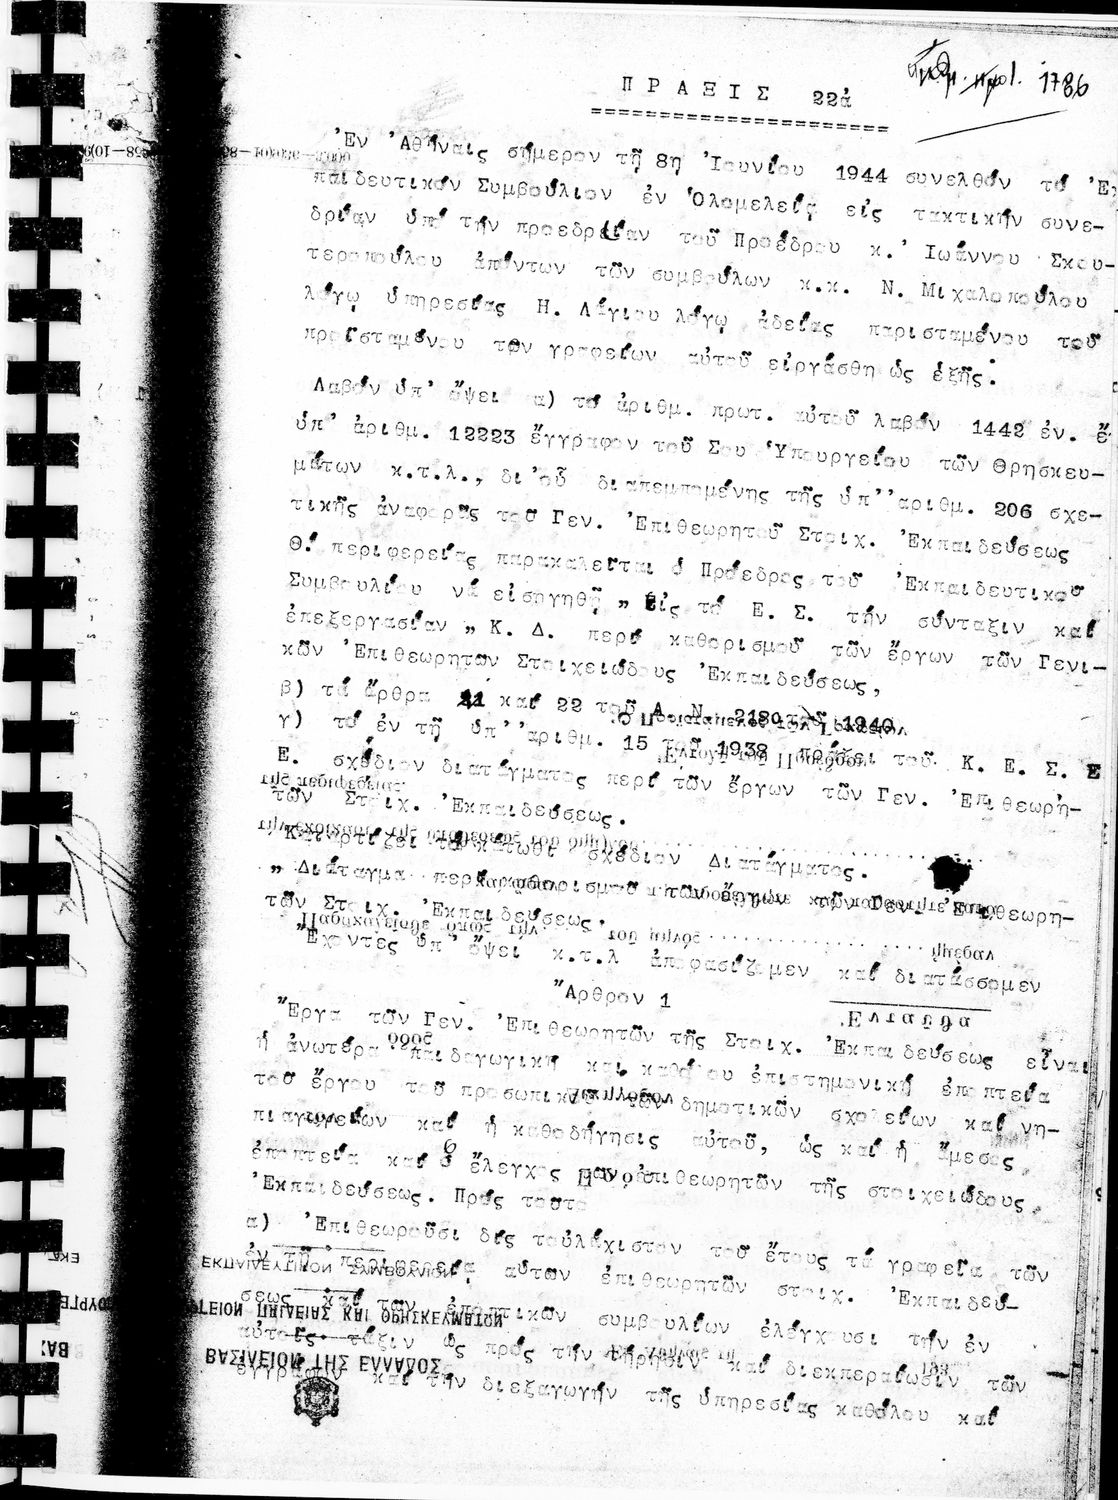 1786
Π Ρ Α Ξ Ι Σ 22ά
Ἐν Ἀθήναις σήμερον τῇ 8η Ἰουνίου 1944 συνελθόν τό Ἐκ
παιδευτικόν Συμβούλιον ἐν Ὁλομελείᾳ εἰς τακτικήν συνε-
δρίαν ὑπό τήν προεδρείαν τοῦ Προέδρου κ. Ἰωάννου Σκου-
τεροπούλου ἀπόντων τῶν συμβούλων κ.κ. Ν. Μιχαλοπούλου
λόγῳ ὑπηρεσίας Η. Λάγιου λόγῳ ἀδείας παρισταμένου τοῦ
προϊσταμένου τῶν γραφείων αὐτοῦ εἰργάσθη ὡς ἑξῆς:
Λαβόν ὑπ' ὄψει α) τό ἀριθμ. πρωτ. αὐτοῦ λαβόν 1442 ἐν. ἔ
ὑπ' ἀριθμ. 12223 ἔγγραφον τοῦ Σου Ὑπουργείου τῶν Θρησκευ-
μάτων κ.τ.λ., δι'οὗ διαπεμπομένης τῆς ὑπ''αριθμ. 206 σχε-
τικῆς ἀναφορᾶς τοῦ Γεν. Ἐπιθεωρητοῦ Στοιχ. Ἐκπαιδεύσεως
Θ. περιφερείας παρακαλεῖται ὁ Πρόεδρος τοῦ Ἐκπαιδευτικοῦ
Συμβουλίου νά εἰσηγηθῇ „ Εἰς τό Ε. Σ. τήν σύνταξιν καί
ἐπεξεργασίαν „ Κ. Δ. περί καθορισμοῦ τῶν ἔργων τῶν Γενι-
κῶν Ἐπιθεωρητῶν Στοιχειώδους Ἐκπαιδεύσεως,
β) τά ἄρθρα 21 καί 22 τοῦ Α. Ν. 2180 τοῦ 1940
γ) τό ἐν τῇ ὑπ''αριθμ. 15 τοῦ 1938 πράξει τοῦ Κ. Ε. Σ. Ε
Ε. σχέδιον διατάγματος περί τῶν ἔργων τῶν Γεν. Ἐπιθεωρη-
τῶν Στοιχ. Ἐκπαιδεύσεως.
Καταρτίζει τό κάτωθι σχέδιον Διατάγματος.
„ Διάταγμα περί καθορισμοῦ τῶν ἔργων τῶν Γεν. Ἐπιθεωρη-
τῶν Στοιχ. Ἐκπαιδεύσεως.
Ἔχοντες ὑπ' ὄψει κ.τ.λ ἀποφασίζομεν καί διατάσσομεν
Ἄρθρον 1
Ἔργα τῶν Γεν. Ἐπιθεωρητῶν τῆς Στοιχ. Ἐκπαιδεύσεως εἶναι
ἡ ἀνωτέρα παιδαγωγική καί καθόλου ἐπιστημονική ἐποπτεία
τοῦ ἔργου τοῦ προσωπικοῦ τῶν δημοτικῶν σχολείων καί νη-
πιαγωγείων καί ἡ καθοδήγησις αὐτοῦ, ὡς καί ἡ ἄμεσος
ἐποπτεία καί ὁ ἔλεγχος τῶν ἐπιθεωρητῶν τῆς στοιχειώδους
Ἐκπαιδεύσεως. Πρός τοῦτο
α) Ἐπιθεωροῦσι δίς τοὐλάχιστον τοῦ ἔτους τά γραφεῖα τῶν
ἐν τῇ περιφερείᾳ αὐτῶν ἐπιθεωρητῶν στοιχ. Ἐκπαιδεύ-
σεως καί τῶν ἐποπτικῶν συμβουλίων ἐλέγχουσι τήν ἐν
αὐτοῖς τάξιν ὡς πρός τήν τήρησιν καί διεκπεραίωσιν τῶν
ἐγγράφων καί τήν διεξαγωγήν τῆς ὑπηρεσίας καθόλου καί
ΕΚΠΑΙΔΕΥΤΙΚΟΝ ΣΥΜΒΟΥΛΙΟΝ
ΥΠΟΥΡΓΕΙΟΝ ΠΑΙΔΕΙΑΣ ΚΑΙ ΘΡΗΣΚΕΥΜΑΤΩΝ
ΒΑΣΙΛΕΙΟΝ ΤΗΣ ΕΛΛΑΔΟΣ